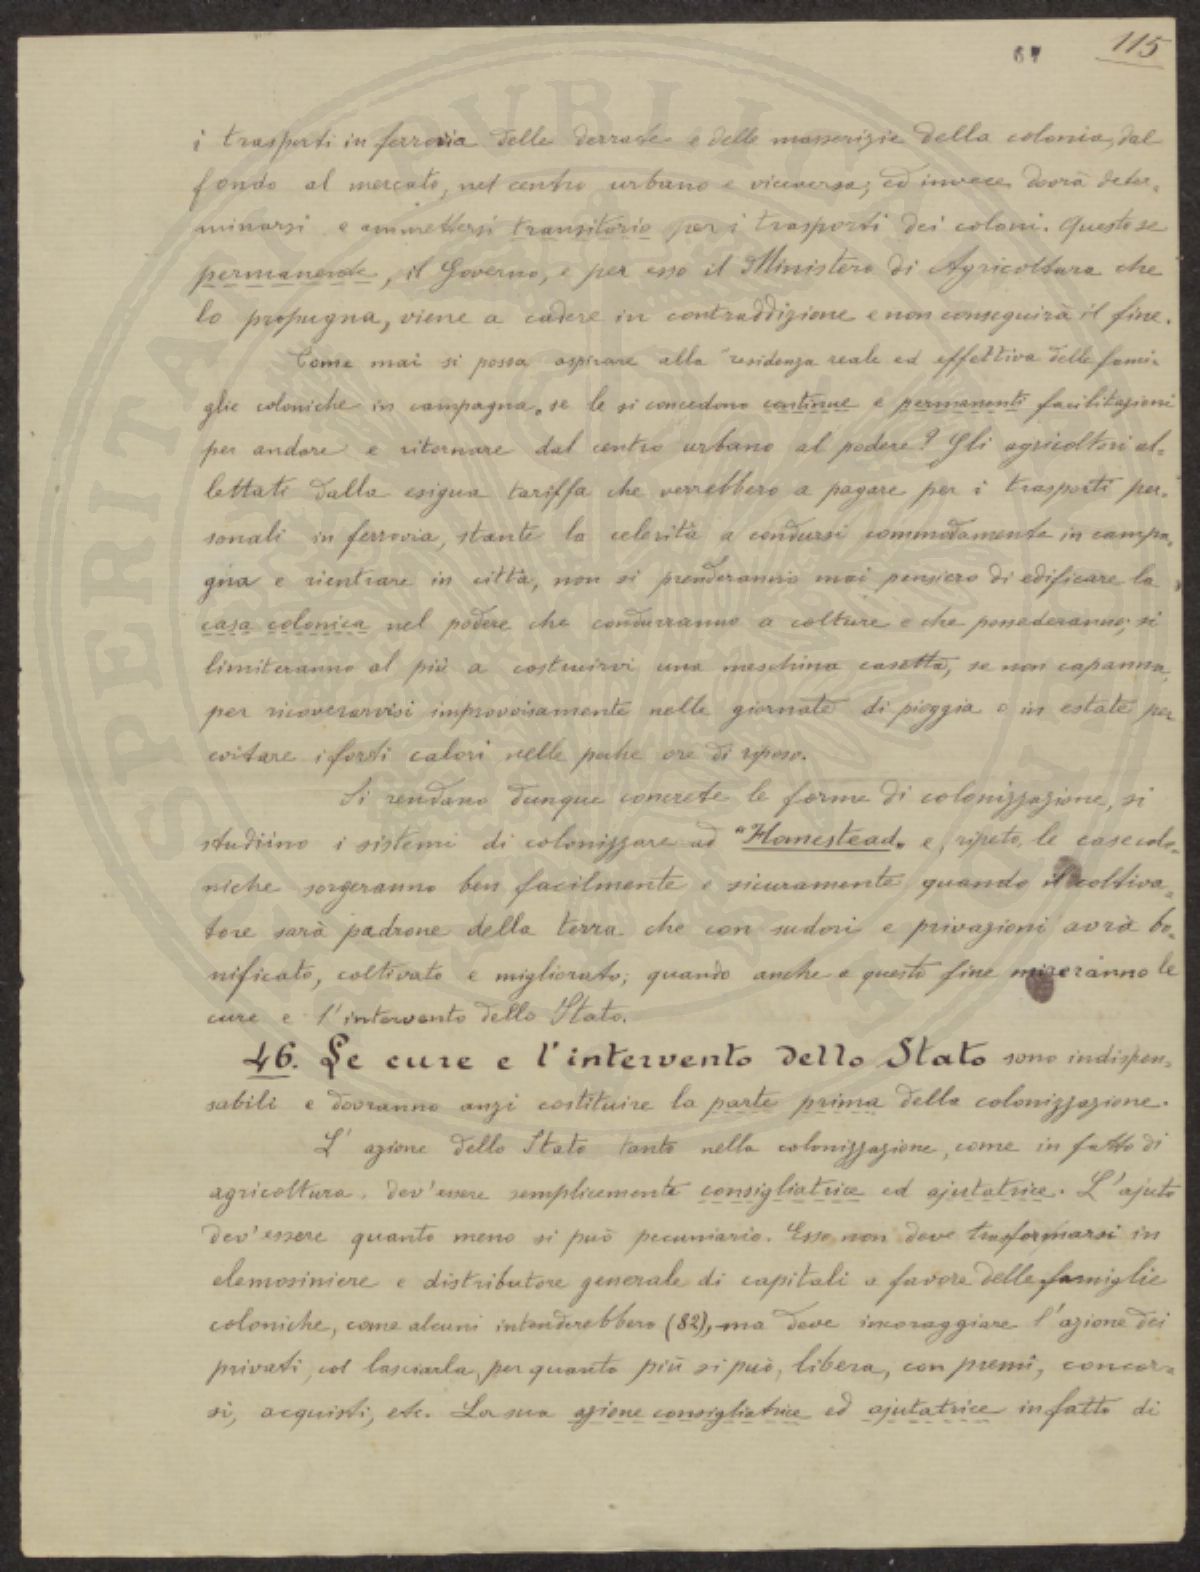 67 115
i trasporti in ferrovia delle derrate e delle masserizie della colonia, dal
fondo al mercato, nel centro urbano e viceversa; ed invece dovrà deter-
minarsi e ammettersi transitorio per i trasporti dei coloni. Questo se
permanente, il Governo, e per esso il Ministero di Agricoltura che
lo propugna, viene a cadere in contraddizione e non conseguirà il fine.
Come mai si possa aspirare alla residenza reale ed effettiva delle fami-
glie coloniche in campagna, se le si concedono continue e permanenti facilitazioni
per andare e ritornare dal centro urbano al podere? Gli agricoltori al-
lettati dalla esigua tariffa che verrebbero a pagare per i trasporti per-
sonali in ferrovia, stante la celerità a condursi commodamente in campa-
gna e rientrare in città, non si prenderanno mai pensiero di edificare la
casa colonica nel podere che condurranno a colture e che possederanno; si
limiteranno al più a costruirvi una meschina casetta, se non capanna,
per ricoverarvisi improvvisamente nelle giornate di pioggia o in estate per
evitare i forti calori nelle poche ore di riposo.
Si rendano dunque concrete le forme di colonizzazione, si
studiino i sistemi di colonizzare ad "Homestead" e, ripeto, le case colo-
niche sorgeranno ben facilmente e sicuramente quando il coltiva-
tore sarà padrone della terra che con sudori e privazioni avrà bo-
nificato, coltivato e migliorato; quando anche a questo fine mireranno le
cure e l'intervento dello Stato.
46. Le cure e l'intervento dello Stato sono indispen-
sabili e dovranno anzi costituire la parte prima della colonizzazione.
L'azione dello Stato tanto nella colonizzazione, come in fatto di
agricoltura, dev'essere semplicemente consigliatrice ed ajutatrice. L'ajuto
dev'essere quanto meno si può pecuniario. Esso non deve trasformarsi in
elemosiniere e distributore generale di capitali a favore delle famiglie
coloniche, come alcuni intenderebbero (82), ma deve incoraggiare l'azione dei
privati, col lasciarla, per quanto più si può, libera, con premi, concor-
si, acquisti, etc. La sua azione consigliatrice ed ajutatrice in fatto di